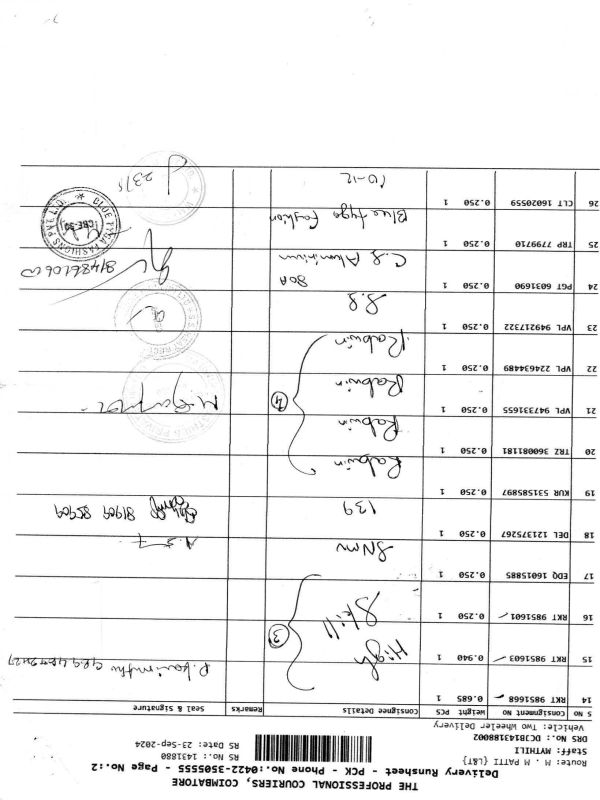 THE PROFESSIONAL COURIERS, COIMBATORE
Delivery Runsheet - PCK - Phone No.:0422-3505555 - Page No.:2
Route: M . M PATTI {L8T}
Staff: MYTHILI
DRS No.: DCBE43188002
Vehicle: Two Wheeler Delivery
RS No.: 1431880
RS Date: 23-Sep-2024
S NO Consignment No Weight PCS Consignee Details Remarks Seal & Signature
14 RKT 9851668 0.685 1
15 RKT 9851603 0.940 1 High
16 RKT 9851601 0.250 1 Skill
3
17 EDQ 16015885 0.250 1 SNMV
18 DEL 121375267 0.250 1 139 81909 85909
19 KUR 53158597 0.250 1 Rabwin
20 TRZ 360081181 0.250 1 Rabwin
21 VPL 947331655 0.250 1 Rabwin
22 VPL 224634489 0.250 1 Rabwin
4
23 VPL 949217322 0.250 1 S.S
24 PGT 6031690 0.250 1 C.S Aluminium
25 TRP 7799710 0.250 1 Blue tyga Fashion
BLUE TYGA FASHIONS PVT LTD.
26 CLT 16020559 0.250 1 10-12
2375